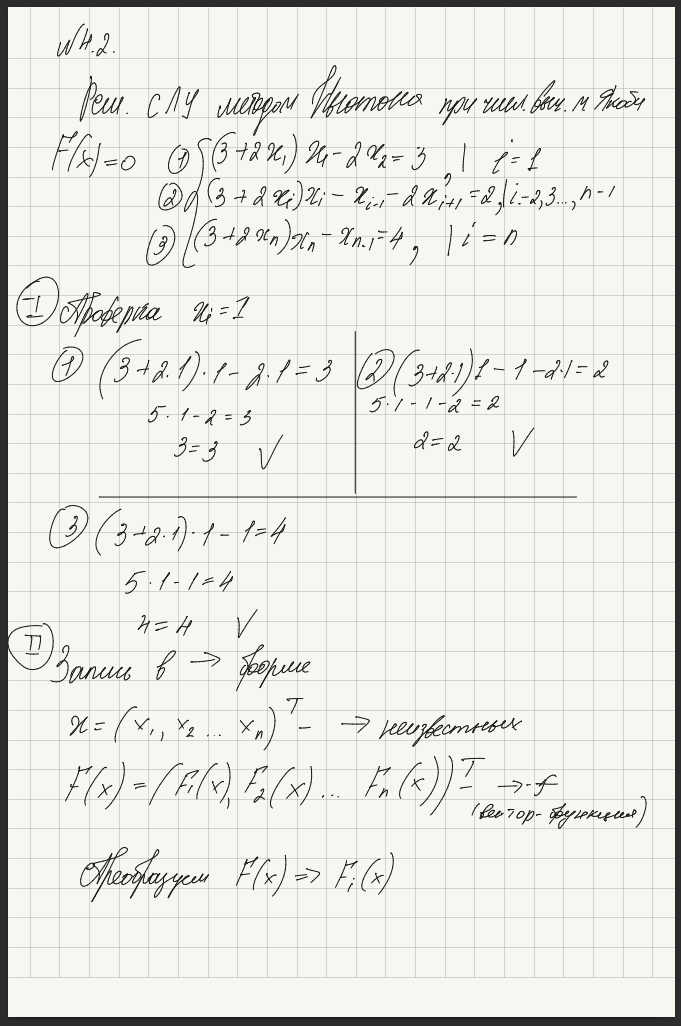 №4.2.
Реш. СЛУ методом Ньютона при числ. выч. м. Якоби
F(x)=0 ① (3+2x₁)x₁-2x₂=3, | i=1
② (3+2xᵢ)xᵢ-xᵢ₋₁-2xᵢ₊₁=2, | i=2,3..., n-1
③ (3+2xₙ)xₙ-xₙ₋₁=4, | i=n
Ⅰ Проверка xᵢ=1
① (3+2·1)·1-2·1=3
5·1-2=3
3=3 √
② (3+2·1)1-1-2·1=2
5·1-1-2=2
2=2 √
③ (3+2·1)·1-1=4
5·1-1=4
4=4 √
Ⅱ Запись в → форме
x=(x₁, x₂ ... xₙ)ᵀ- → неизвестных
F(x)=(F₁(x), F₂(x)... Fₙ(x))ᵀ- →f
(вектор-функция)
Преобразуем F(x) => Fᵢ(x)